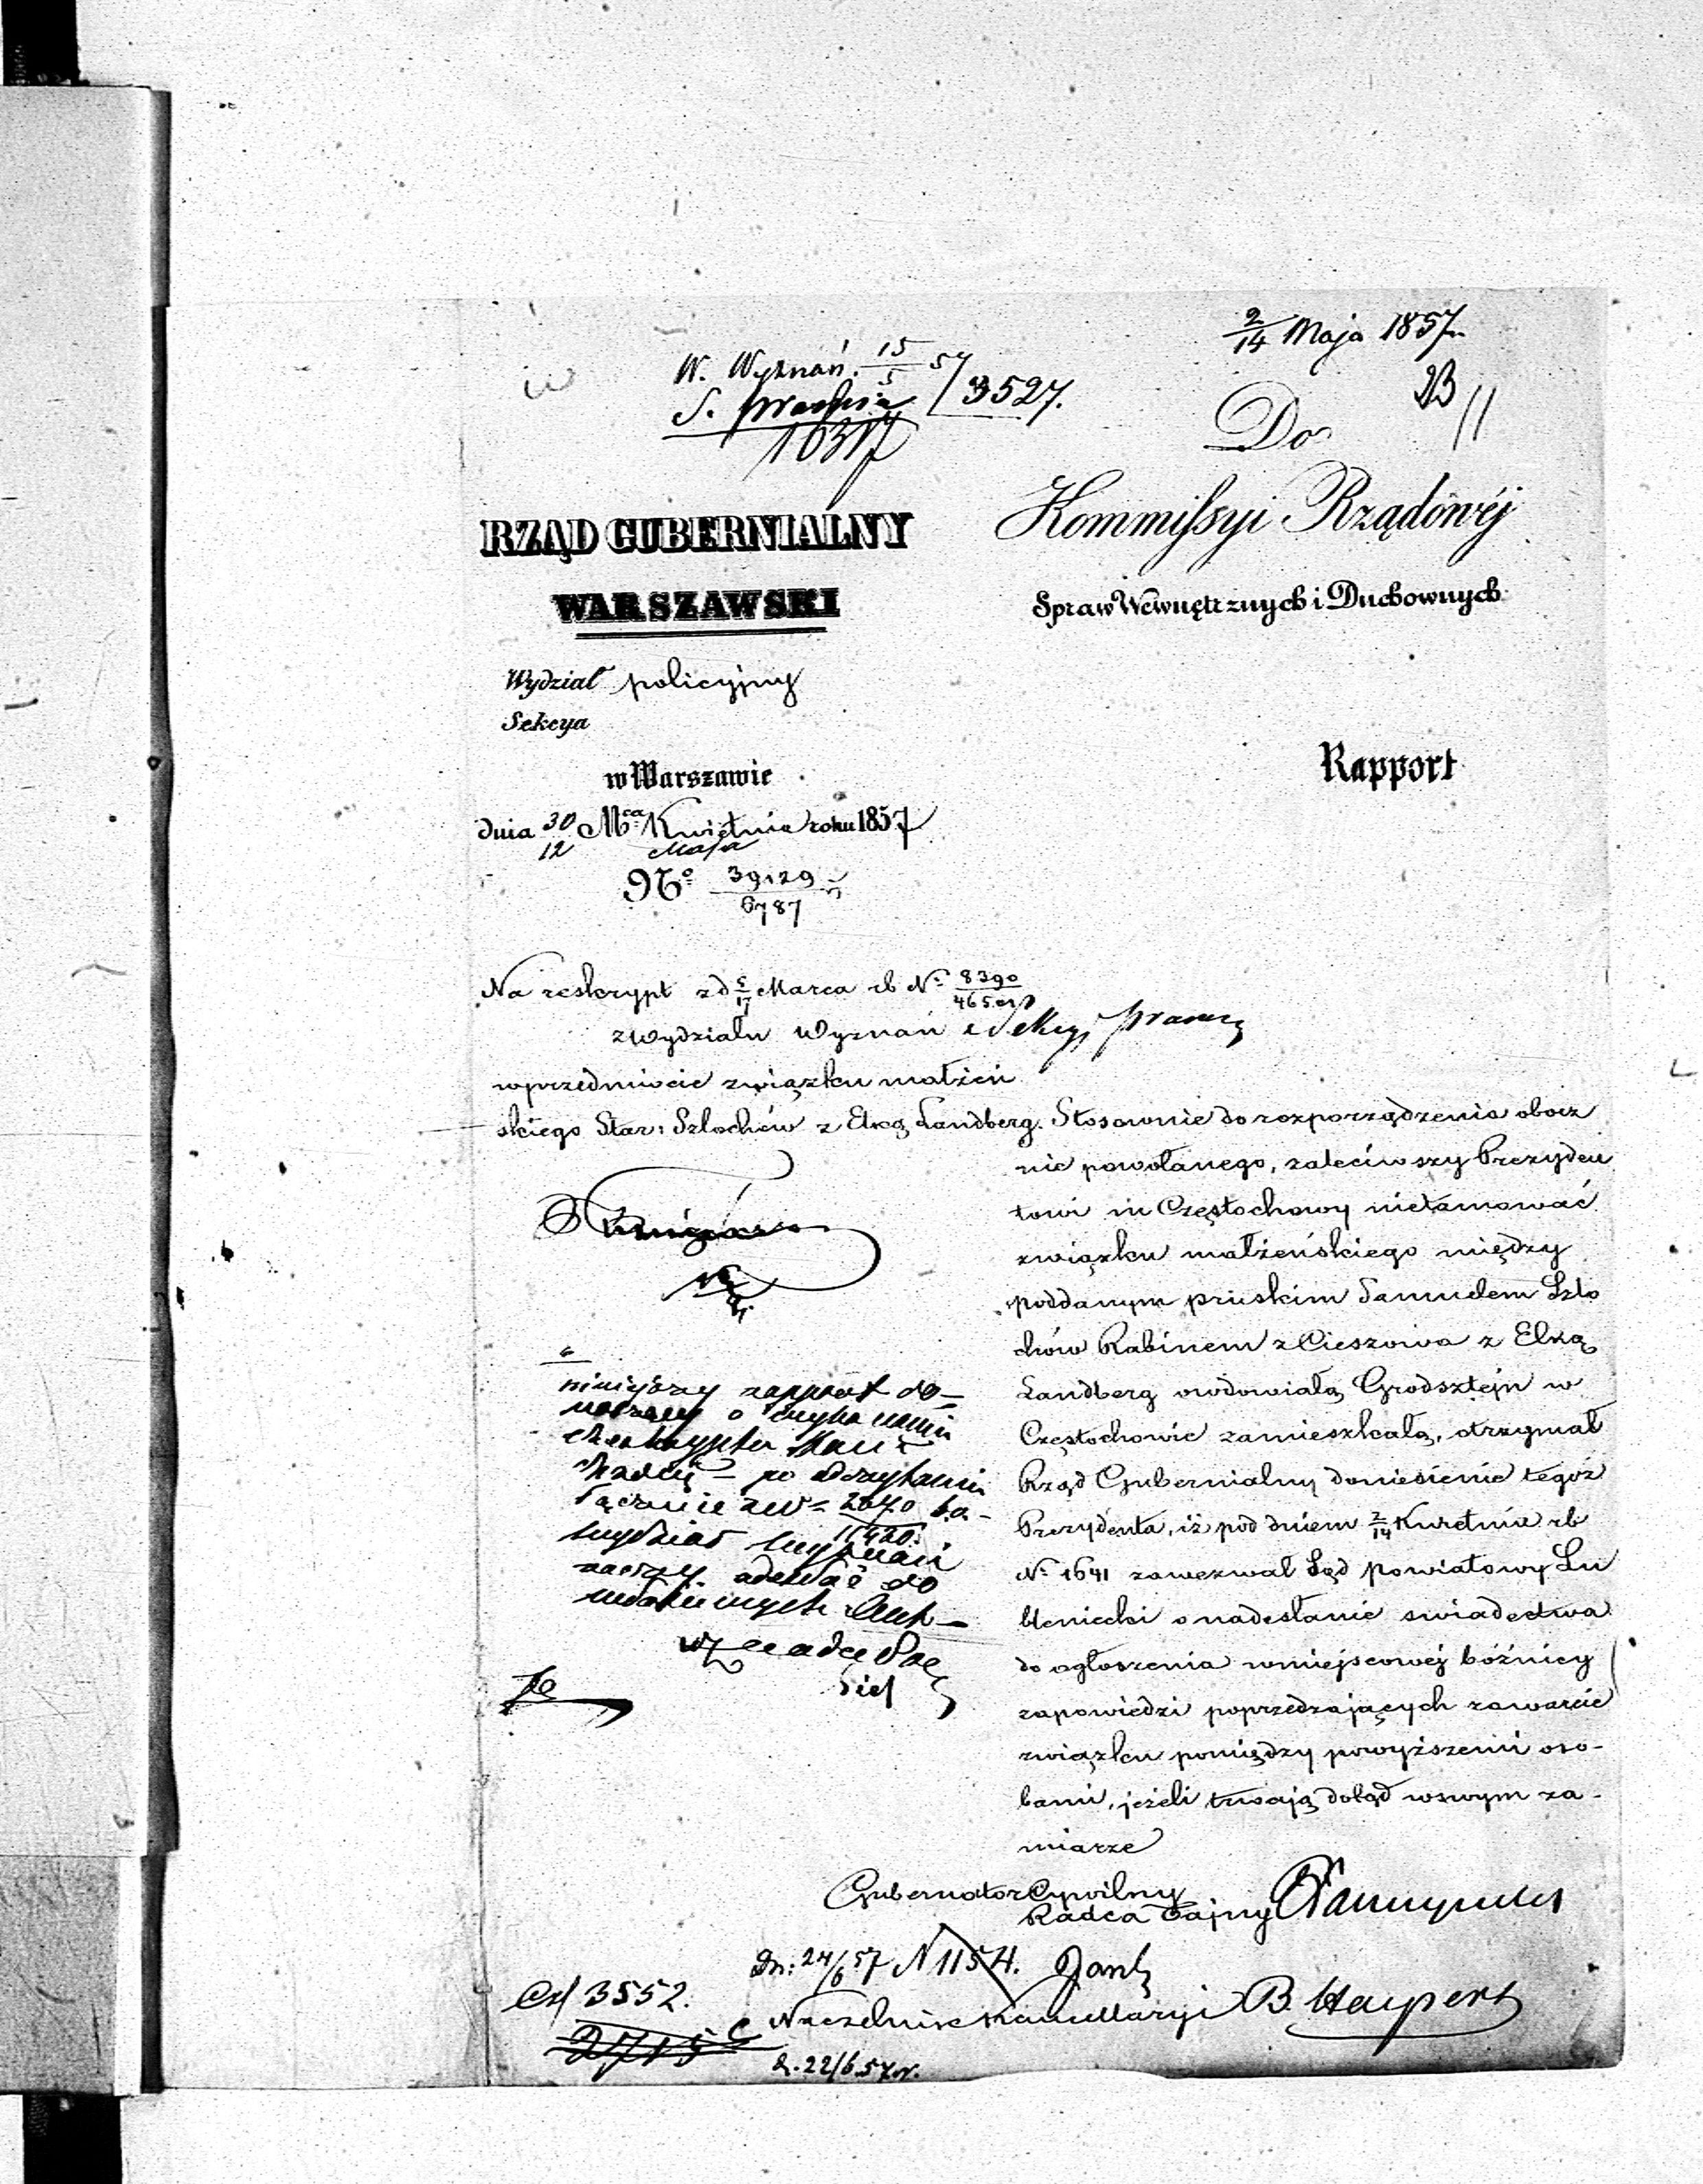 2/14 Maja 1857.
W. Wyznań. 15/5 57 / 3527.
S. prawna
10317
23
Do
Kommissyi Rządowéj
Spraw Wewnętrznych i Duchownych
RZĄD GUBERNIALNY
WARSZAWSKI
Wydział policyjny
Sekcya
Rapport
w Warszawie
dnia 30/12 Mca Kwietnia/Maja roku 1857
No 39129/6787
Na reskrypt z d 5/17 Marca rb No 8390/465
z Wydziału Wyznań Sekcyi prawnej
w przedmiocie związku małżeń
skiego Star: Szlochów z Elką Landberg. Stosownie do rozporządzenia obocz
nie powołanego, zaleciwszy Prezyden
towi m Częstochowy nietamować
związku małżeńskiego między
poddanym pruskim Samuelem Szlo
chów Rabinem z Cieszowa z Elką
Landberg owdowiałą Grodsztejn w
Częstochowie zamieszkałą, otrzymał
Rząd Gubernialny doniesienie tegoż
Prezydenta, iż pod dniem 2/14 Kwietnia rb
No 1641 zawezwał Sąd powiatowy Lu
bleniecki o nadesłanie swiadectwa
do ogłoszenia w miejscowéj bóźnicy
zapowiedzi poprzedzających zawarcie
związku pomiędzy powyższemi oso-
bami, jeżeli trwają dotąd w swym za-
miarze
niniejszy rapport do-
po odczytaniu
łącznie 2070
11420
wydział wyznań
raczy odesłać do
Gubernator Cywilny
Radca Tajny
Dn: 24/6 57 N 1154.
Czl 3552.
2715
Naczelnik Kancellaryi B. Halpert
d. 22/6 57 r.